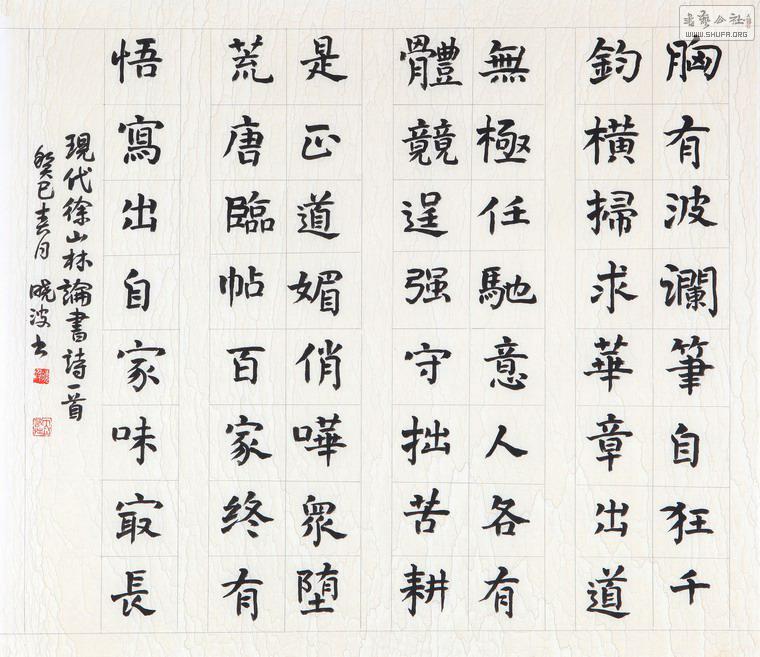 胸有波瀾筆自狂千
鈞橫掃求華章出道
無極任馳意人各有
體競逞强守拙苦耕
是正道媚俏嘩衆堕
荒唐臨帖百家终有
悟寫出自家味㝡長
現代徐山林論書詩一首
癸巳春月晓波书
書藝公社
WWW.SHUFA.ORG